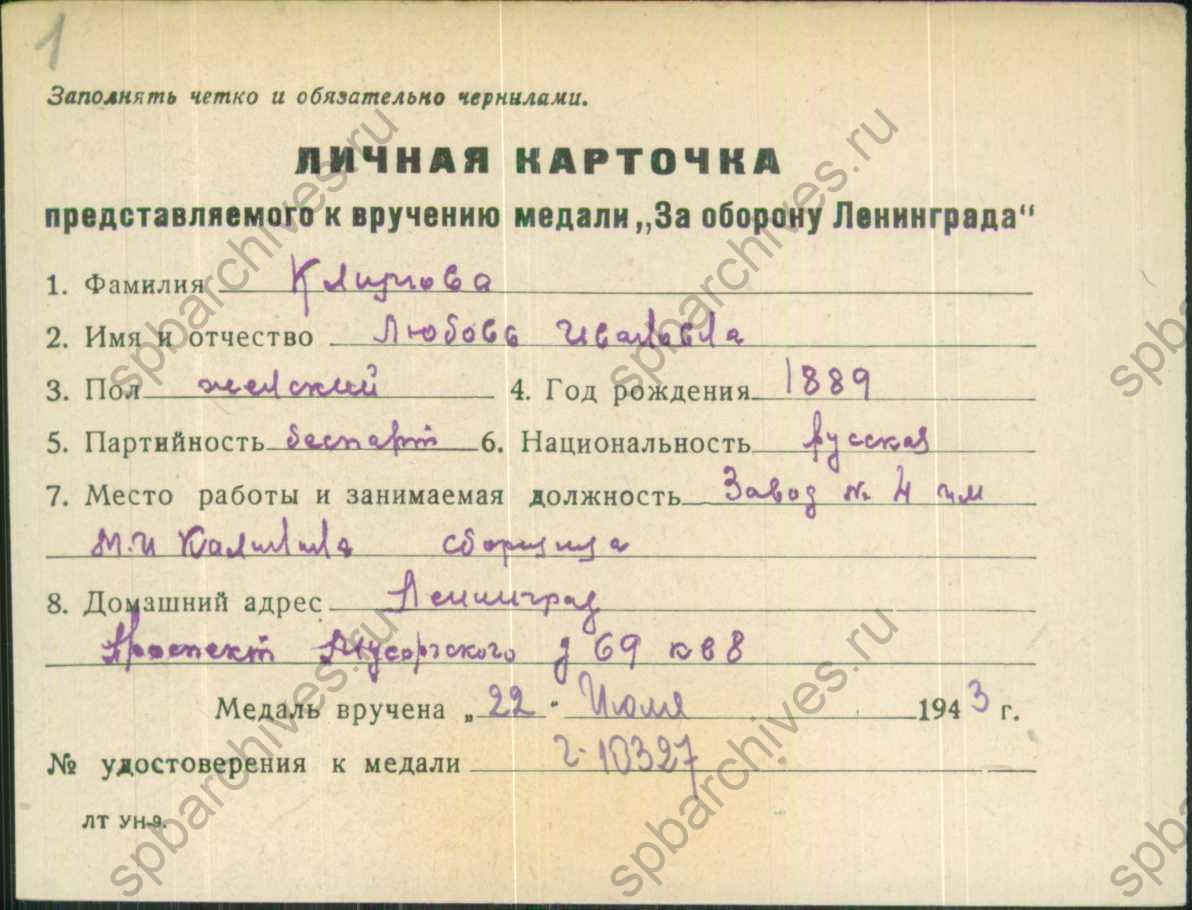 1
Заполнять четко и обязательно чернилами.
ЛИЧНАЯ КАРТОЧКА
представляемого к вручению медали „За оборону Ленинграда“
1. Фамилия Климова
2. Имя и отчество Любовь Ивановна
3. Пол женский 4. Год рождения 1889
5. Партийность беспарт 6. Национальность русская
7. Место работы и занимаемая должность Завод № 4 им
М.И Калинина сборщица
8. Домашний адрес Ленинград
Проспект Мусоргского д 69 кв 8
Медаль вручена „22" Июля 1943 г.
№ удостоверения к медали 10327
ЛТ УН-9.
spbarchives.ru